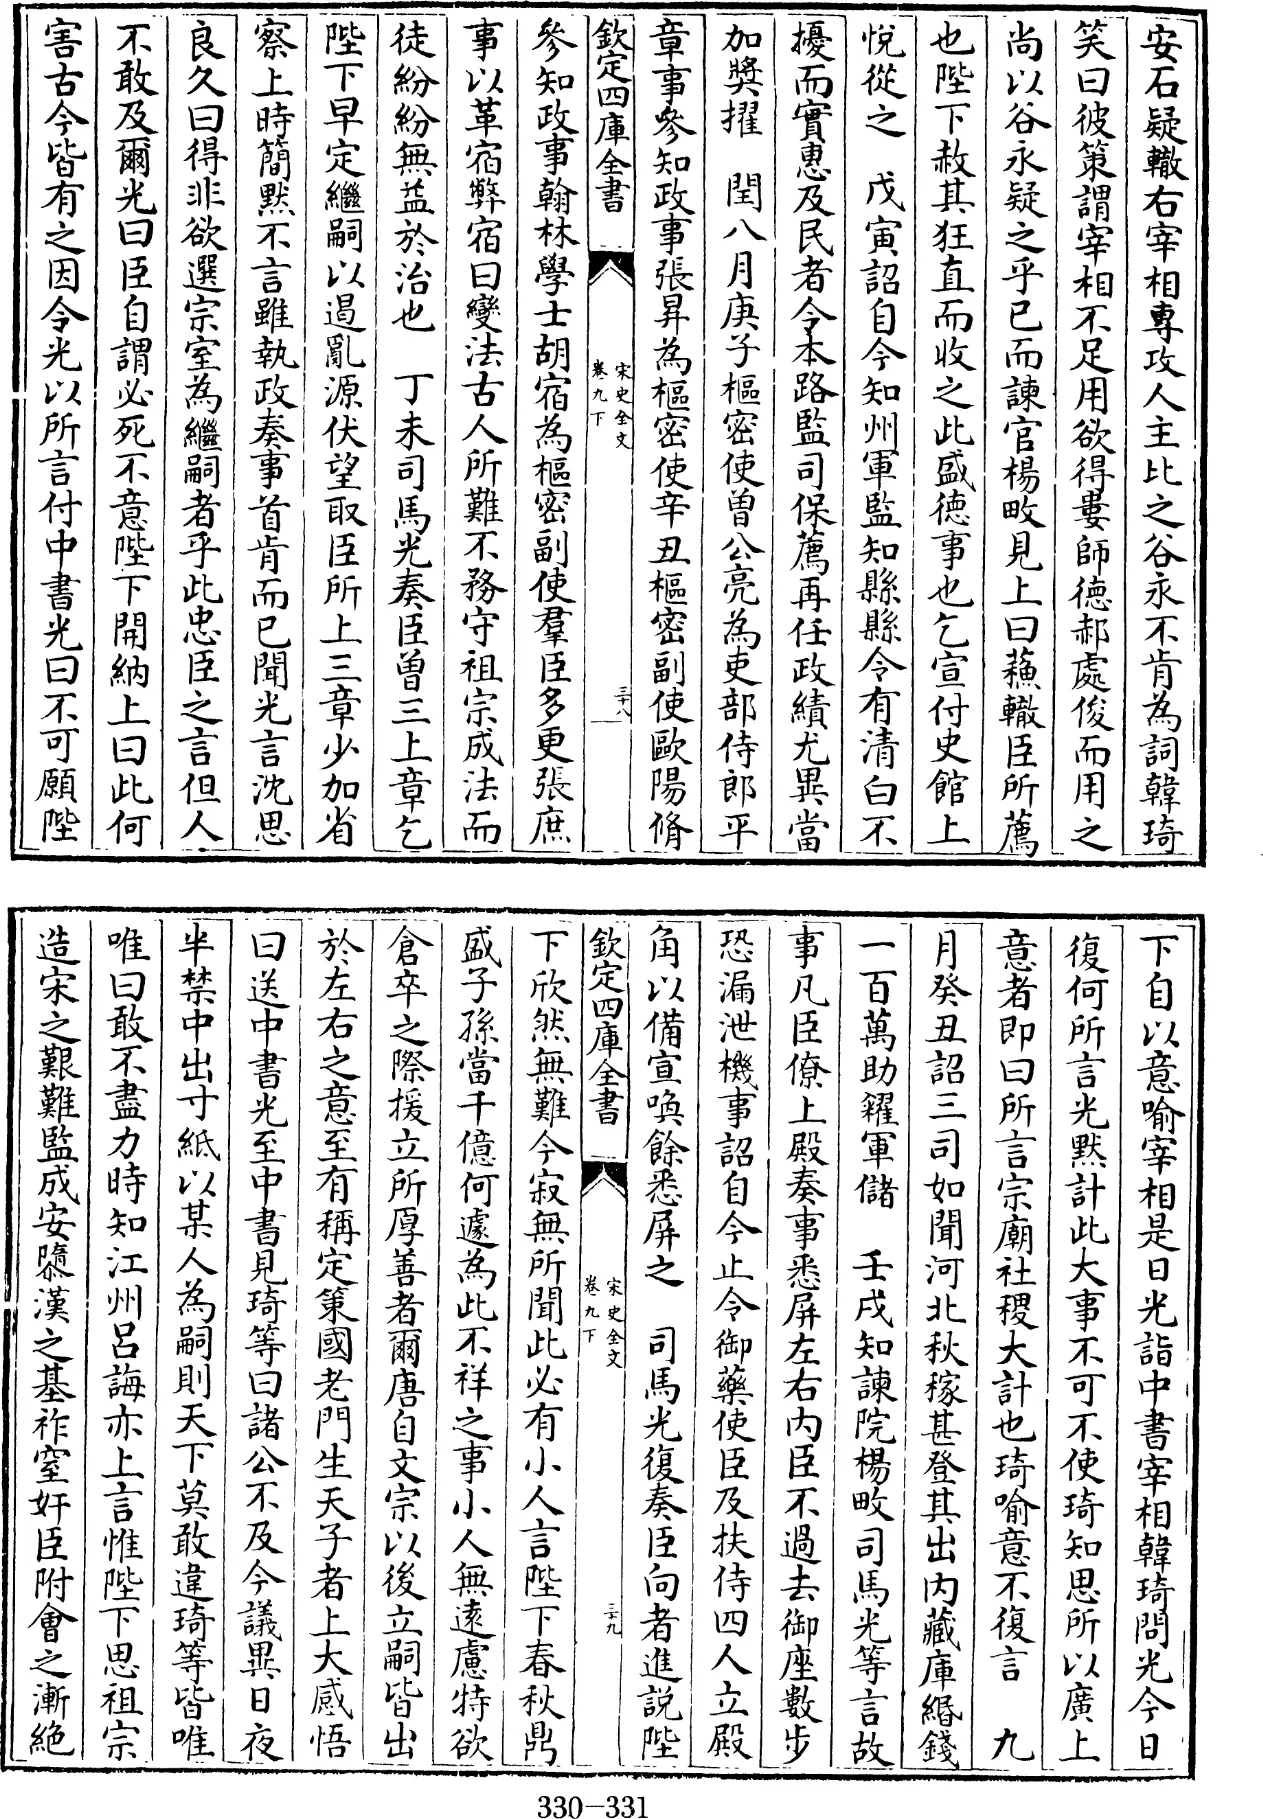 安石疑轍右宰相專攻人主比之谷永不肯為詞韓琦
笑曰彼策謂宰相不足用欲得婁師德郝處俊而用之
尚以谷永疑之乎已而諫官楊畋見上曰蘇轍臣所薦
也陛下赦其狂直而收之此盛德事也乞宣付史館上
悅從之　戊寅詔自今知州軍監知縣縣令有清白不
擾而實惠及民者令本路監司保薦再任政績尤異當
加獎擢　閏八月庚子樞密使曾公亮為吏部侍郎平
章事參知政事張昇為樞密使辛丑樞密副使歐陽脩
欽定四庫全書
宋史全文
卷九下
三十八
參知政事翰林學士胡宿為樞密副使羣臣多更張庶
事以革宿弊宿曰變法古人所難不務守祖宗成法而
徒紛紛無益於治也　丁未司馬光奏臣曾三上章乞
陛下早定繼嗣以遏亂源伏望取臣所上三章少加省
察上時簡默不言雖執政奏事首肯而已聞光言沈思
良久曰得非欲選宗室為繼嗣者乎此忠臣之言但人
不敢及爾光曰臣自謂必死不意陛下開納上曰此何
害古今皆有之因令光以所言付中書光曰不可願陛
下自以意喻宰相是日光詣中書宰相韓琦問光今日
復何所言光默計此大事不可不使琦知思所以廣上
意者即曰所言宗廟社稷大計也琦喻意不復言　九
月癸丑詔三司如聞河北秋稼甚登其出内藏庫緡錢
一百萬助糴軍儲　壬戌知諫院楊畋司馬光等言故
事凡臣僚上殿奏事悉屏左右内臣不過去御座數步
恐漏泄機事詔自今止令御藥使臣及扶侍四人立殿
角以備宣喚餘悉屏之　司馬光復奏臣向者進説陛
欽定四庫全書
宋史全文
卷九下
三十九
下欣然無難今寂無所聞此必有小人言陛下春秋鼎
盛子孫當千億何遽為此不祥之事小人無遠慮特欲
倉卒之際援立所厚善者爾唐自文宗以後立嗣皆出
於左右之意至有稱定策國老門生天子者上大感悟
曰送中書光至中書見琦等曰諸公不及今議異日夜
半禁中出寸紙以某人為嗣則天下莫敢違琦等皆唯
唯曰敢不盡力時知江州吕誨亦上言惟陛下思祖宗
造宋之艱難監成安隳漢之基祚窒奸臣附會之漸絶
330-331